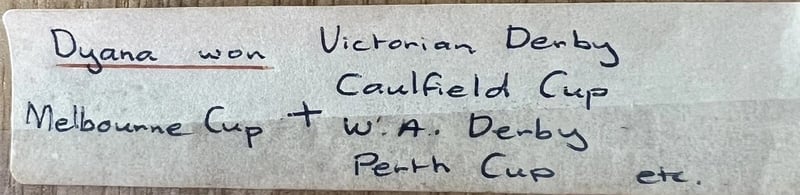 Dyana won Victorian Derby
Caulfield Cup
Melbourne Cup + W.A. Derby
Perth Cup etc.